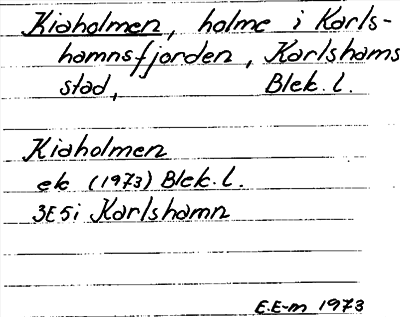 Kiaholmen, holme i Karls-
hamnsfjorden, Karlshams
stad, Blek. l.
Kiaholmen
ek (1973) Blek. l.
3E5i Karlshamn
E.E-m 1973